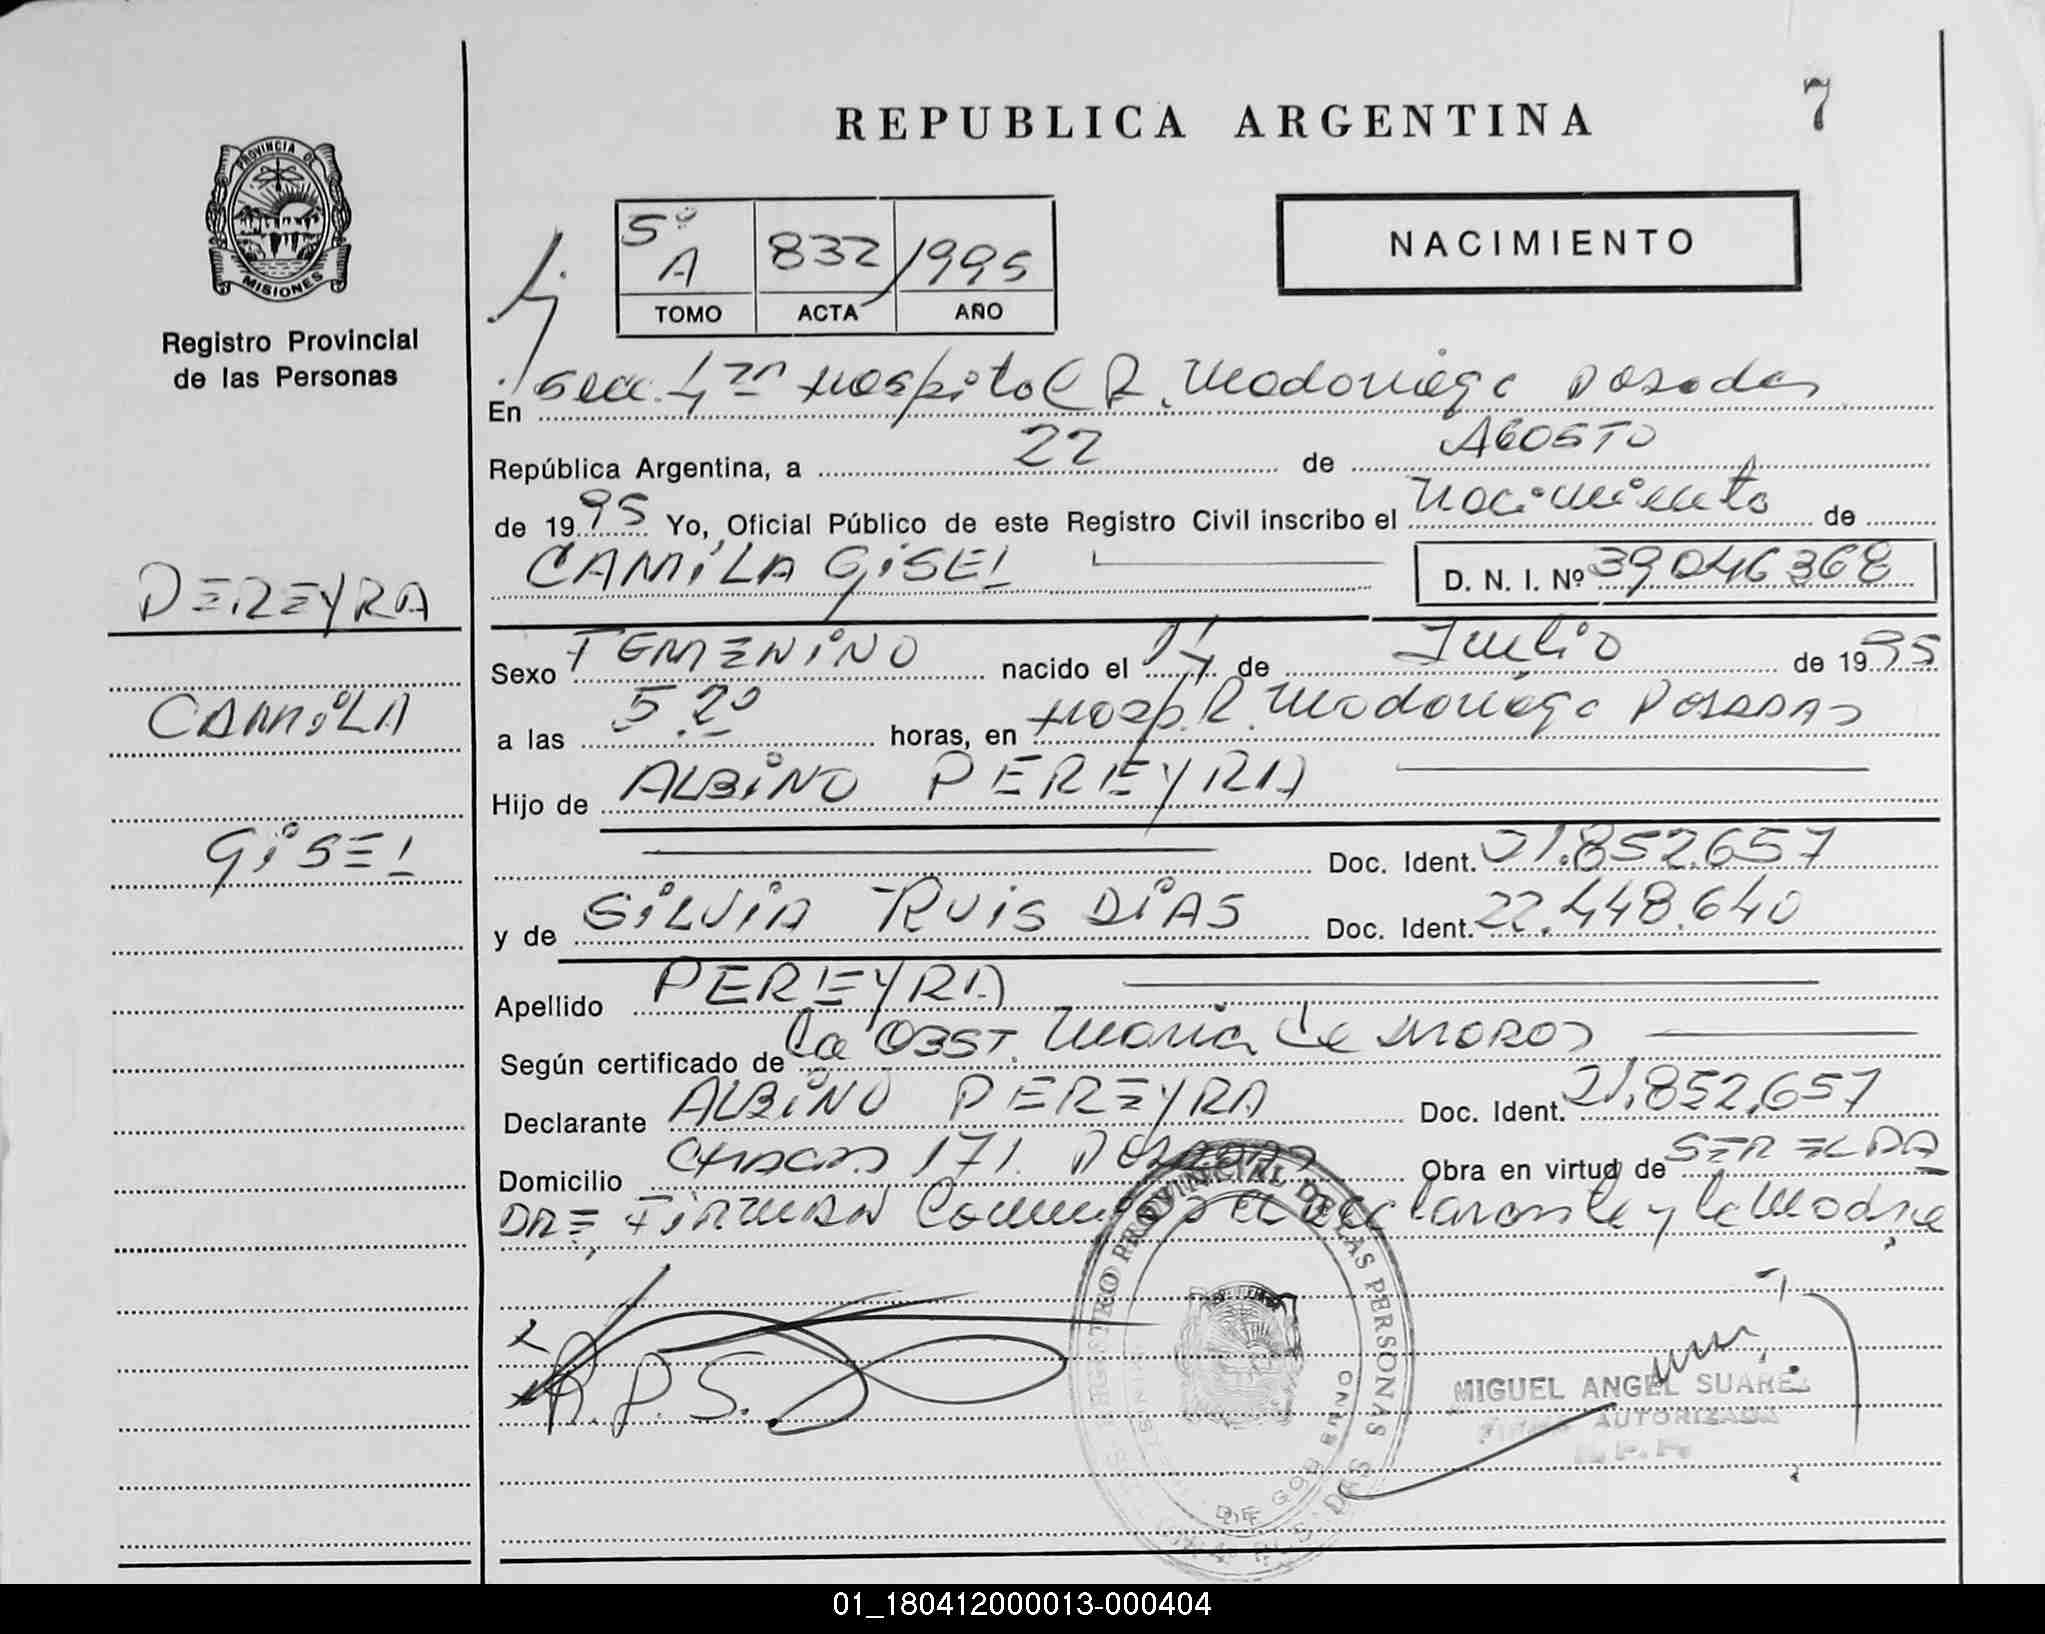 REPUBLICA ARGENTINA
7
PROVINCIA DE
MISIONES
Registro Provincial
de las Personas
5º A 832 1995
TOMO ACTA AÑO
NACIMIENTO
En Secc. 4ta Hospital R. Madariaga Posadas
República Argentina, a 22 de AGOSTO
de 1995 Yo, Oficial Público de este Registro Civil inscribo el nacimiento de
CAMILA GISEL D. N. I. Nº 39046368
PEREYRA
CAMILA
GISEL
Sexo FEMENINO nacido el de Julio de 1995
a las 5.20 horas, en Hosp. R. Madariaga POSADAS
Hijo de ALBINO PEREYRA
Doc. Ident. 21.852.657
y de SILVIA RUIS DIAS Doc. Ident. 22.448.640
Apellido PEREYRA
Según certificado de la OBST. Maria de
Declarante ALBINO PEREYRA Doc. Ident. 21.852.657
Domicilio CHACO 171 POSADAS Obra en virtud de SER EL PA
DRE, FIRMAN Conmigo el declarante y la Madre
REGISTRO PROVINCIAL DE LAS PERSONAS
DE GOBIERNO
R.P.S.
MIGUEL ANGEL SUAREZ
FIRMA AUTORIZADA
R. P. P.
01_180412000013-000404